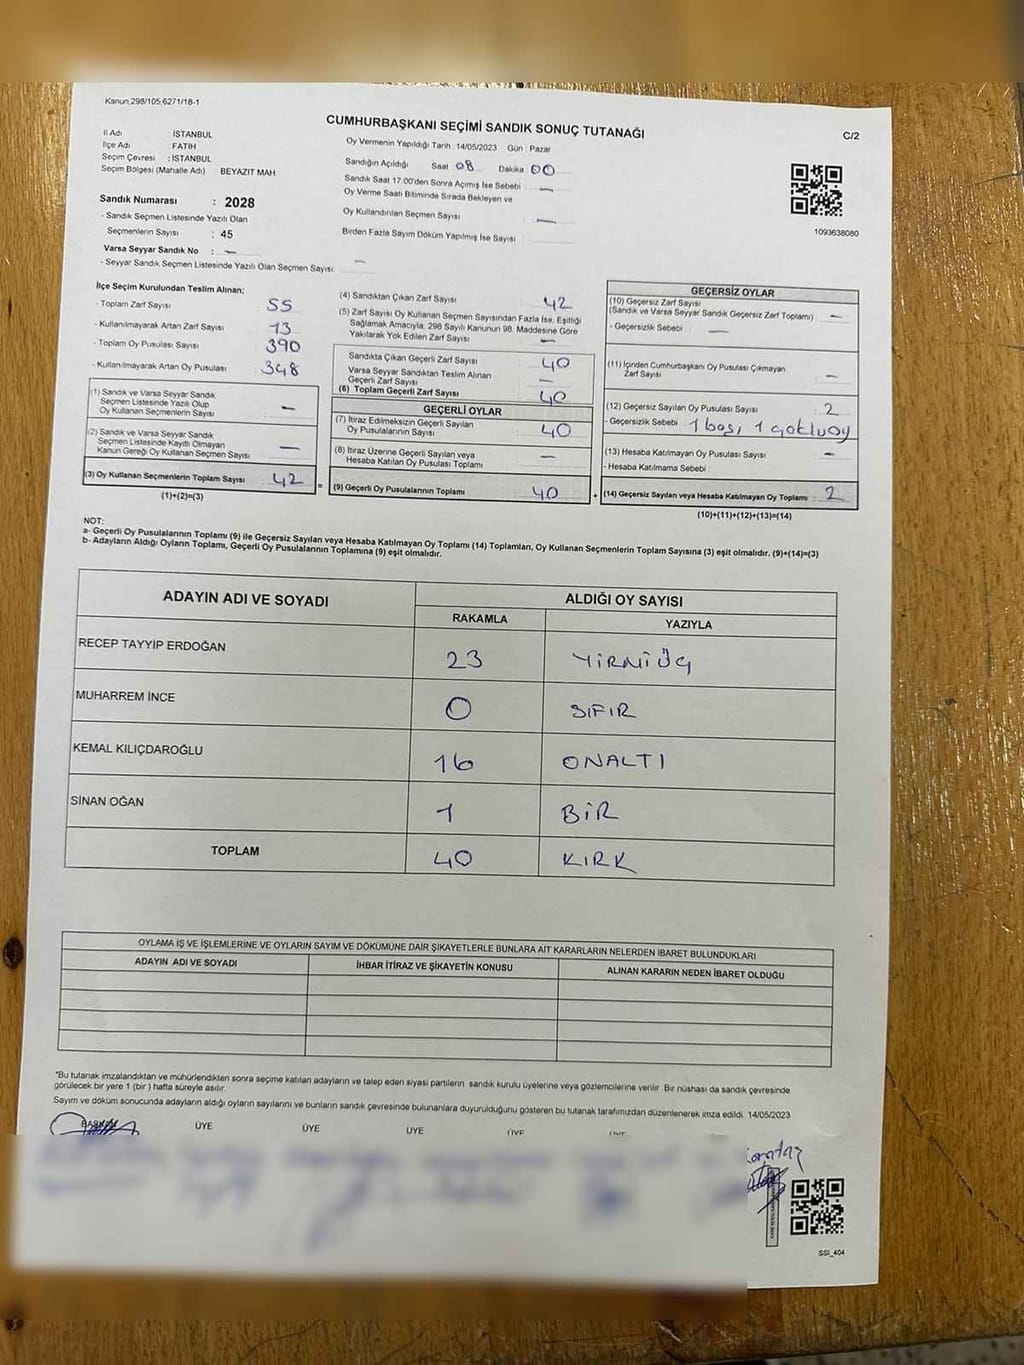 Kanun,298/105,6271/18-1
CUMHURBAŞKANI SEÇİMİ SANDIK SONUÇ TUTANAĞI
C/2
İl Adı : İSTANBUL
İlçe Adı : FATİH
Seçim Çevresi : İSTANBUL
Seçim Bölgesi (Mahalle Adı) BEYAZIT MAH.
Sandık Numarası : 2028
- Sandık Seçmen Listesinde Yazılı Olan
Seçmenlerin Sayısı : 45
Varsa Seyyar Sandık No : —
- Seyyar Sandık Seçmen Listesinde Yazılı Olan Seçmen Sayısı —
Oy Vermenin Yapıldığı Tarih : 14/05/2023 Gün : Pazar
Sandığın Açıldığı Saat 08 Dakika 00
Sandık Saat 17.00'den Sonra Açılmış İse Sebebi —
Oy Verme Saati Bitiminde Sırada Bekleyen ve
Oy Kullandırılan Seçmen Sayısı —
Birden Fazla Sayım Döküm Yapılmış İse Sayısı
1093638080
İlçe Seçim Kurulundan Teslim Alınan;
- Toplam Zarf Sayısı 55
- Kullanılmayarak Artan Zarf Sayısı 13
- Toplam Oy Pusulası Sayısı 390
- Kullanılmayarak Artan Oy Pusulası 348
(1) Sandık ve Varsa Seyyar Sandık
Seçmen Listesinde Yazılı Olup
Oy Kullanan Seçmenlerin Sayısı —
(2) Sandık ve Varsa Seyyar Sandık
Seçmen Listesinde Kayıtlı Olmayan
Kanun Gereği Oy Kullanan Seçmen Sayısı —
(3) Oy Kullanan Seçmenlerin Toplam Sayısı : 42
(1)+(2)=(3)
=
(4) Sandıktan Çıkan Zarf Sayısı 42
(5) Zarf Sayısı Oy Kullanan Seçmen Sayısından Fazla İse, Eşitliği
Sağlamak Amacıyla, 298 Sayılı Kanunun 98. Maddesine Göre
Yakılarak Yok Edilen Zarf Sayısı —
Sandıkta Çıkan Geçerli Zarf Sayısı 40
Varsa Seyyar Sandıktan Teslim Alınan
Geçerli Zarf Sayısı —
(6) Toplam Geçerli Zarf Sayısı 40
GEÇERLİ OYLAR
(7) İtiraz Edilmeksizin Geçerli Sayılan
Oy Pusulalarının Sayısı 40
(8) İtiraz Üzerine Geçerli Sayılan veya
Hesaba Katılan Oy Pusulası Toplamı —
(9) Geçerli Oy Pusulalarının Toplamı 40
+
GEÇERSİZ OYLAR
(10) Geçersiz Zarf Sayısı
(Sandık ve Varsa Seyyar Sandık Geçersiz Zarf Toplamı) —
- Geçersizlik Sebebi : —
(11) İçinden Cumhurbaşkanı Oy Pusulası Çıkmayan
Zarf Sayısı —
(12) Geçersiz Sayılan Oy Pusulası Sayısı : 2
- Geçersizlik Sebebi : 1 boş, 1 çoklu oy
(13) Hesaba Katılmayan Oy Pusulası Sayısı —
- Hesaba Katılmama Sebebi :
(14) Geçersiz Sayılan veya Hesaba Katılmayan Oy Toplamı : 2
(10)+(11)+(12)+(13)=(14)
NOT:
a- Geçerli Oy Pusulalarının Toplamı (9) ile Geçersiz Sayılan veya Hesaba Katılmayan Oy Toplamı (14) Toplamları, Oy Kullanan Seçmenlerin Toplam Sayısına (3) eşit olmalıdır. (9)+(14)=(3)
b- Adayların Aldığı Oyların Toplamı, Geçerli Oy Pusulalarının Toplamına (9) eşit olmalıdır.
ADAYIN ADI VE SOYADI ALDIĞI OY SAYISI
RAKAMLA YAZIYLA
RECEP TAYYİP ERDOĞAN 23 YİRMİÜÇ
MUHARREM İNCE 0 SIFIR
KEMAL KILIÇDAROĞLU 16 ONALTI
SİNAN OĞAN 1 BİR
TOPLAM 40 KIRK
OYLAMA İŞ VE İŞLEMLERİNE VE OYLARIN SAYIM VE DÖKÜMÜNE DAİR ŞİKAYETLERLE BUNLARA AİT KARARLARIN NELERDEN İBARET BULUNDUKLARI
ADAYIN ADI VE SOYADI İHBAR İTİRAZ VE ŞİKAYETİN KONUSU ALINAN KARARIN NEDEN İBARET OLDUĞU
"Bu tutanak imzalandıktan ve mühürlendikten sonra seçime katılan adayların ve talep eden siyasi partilerin sandık kurulu üyelerine veya gözlemcilerine verilir. Bir nüshası da sandık çevresinde
görülecek bir yere 1 (bir ) hafta süreyle asılır.
Sayım ve döküm sonucunda adayların aldığı oyların sayılarını ve bunların sandık çevresinde bulunanlara duyurulduğunu gösteren bu tutanak tarafımızdan düzenlenerek imza edildi. 14/05/2023
BAŞKAN ÜYE ÜYE ÜYE ÜYE ÜYE
SSI_404